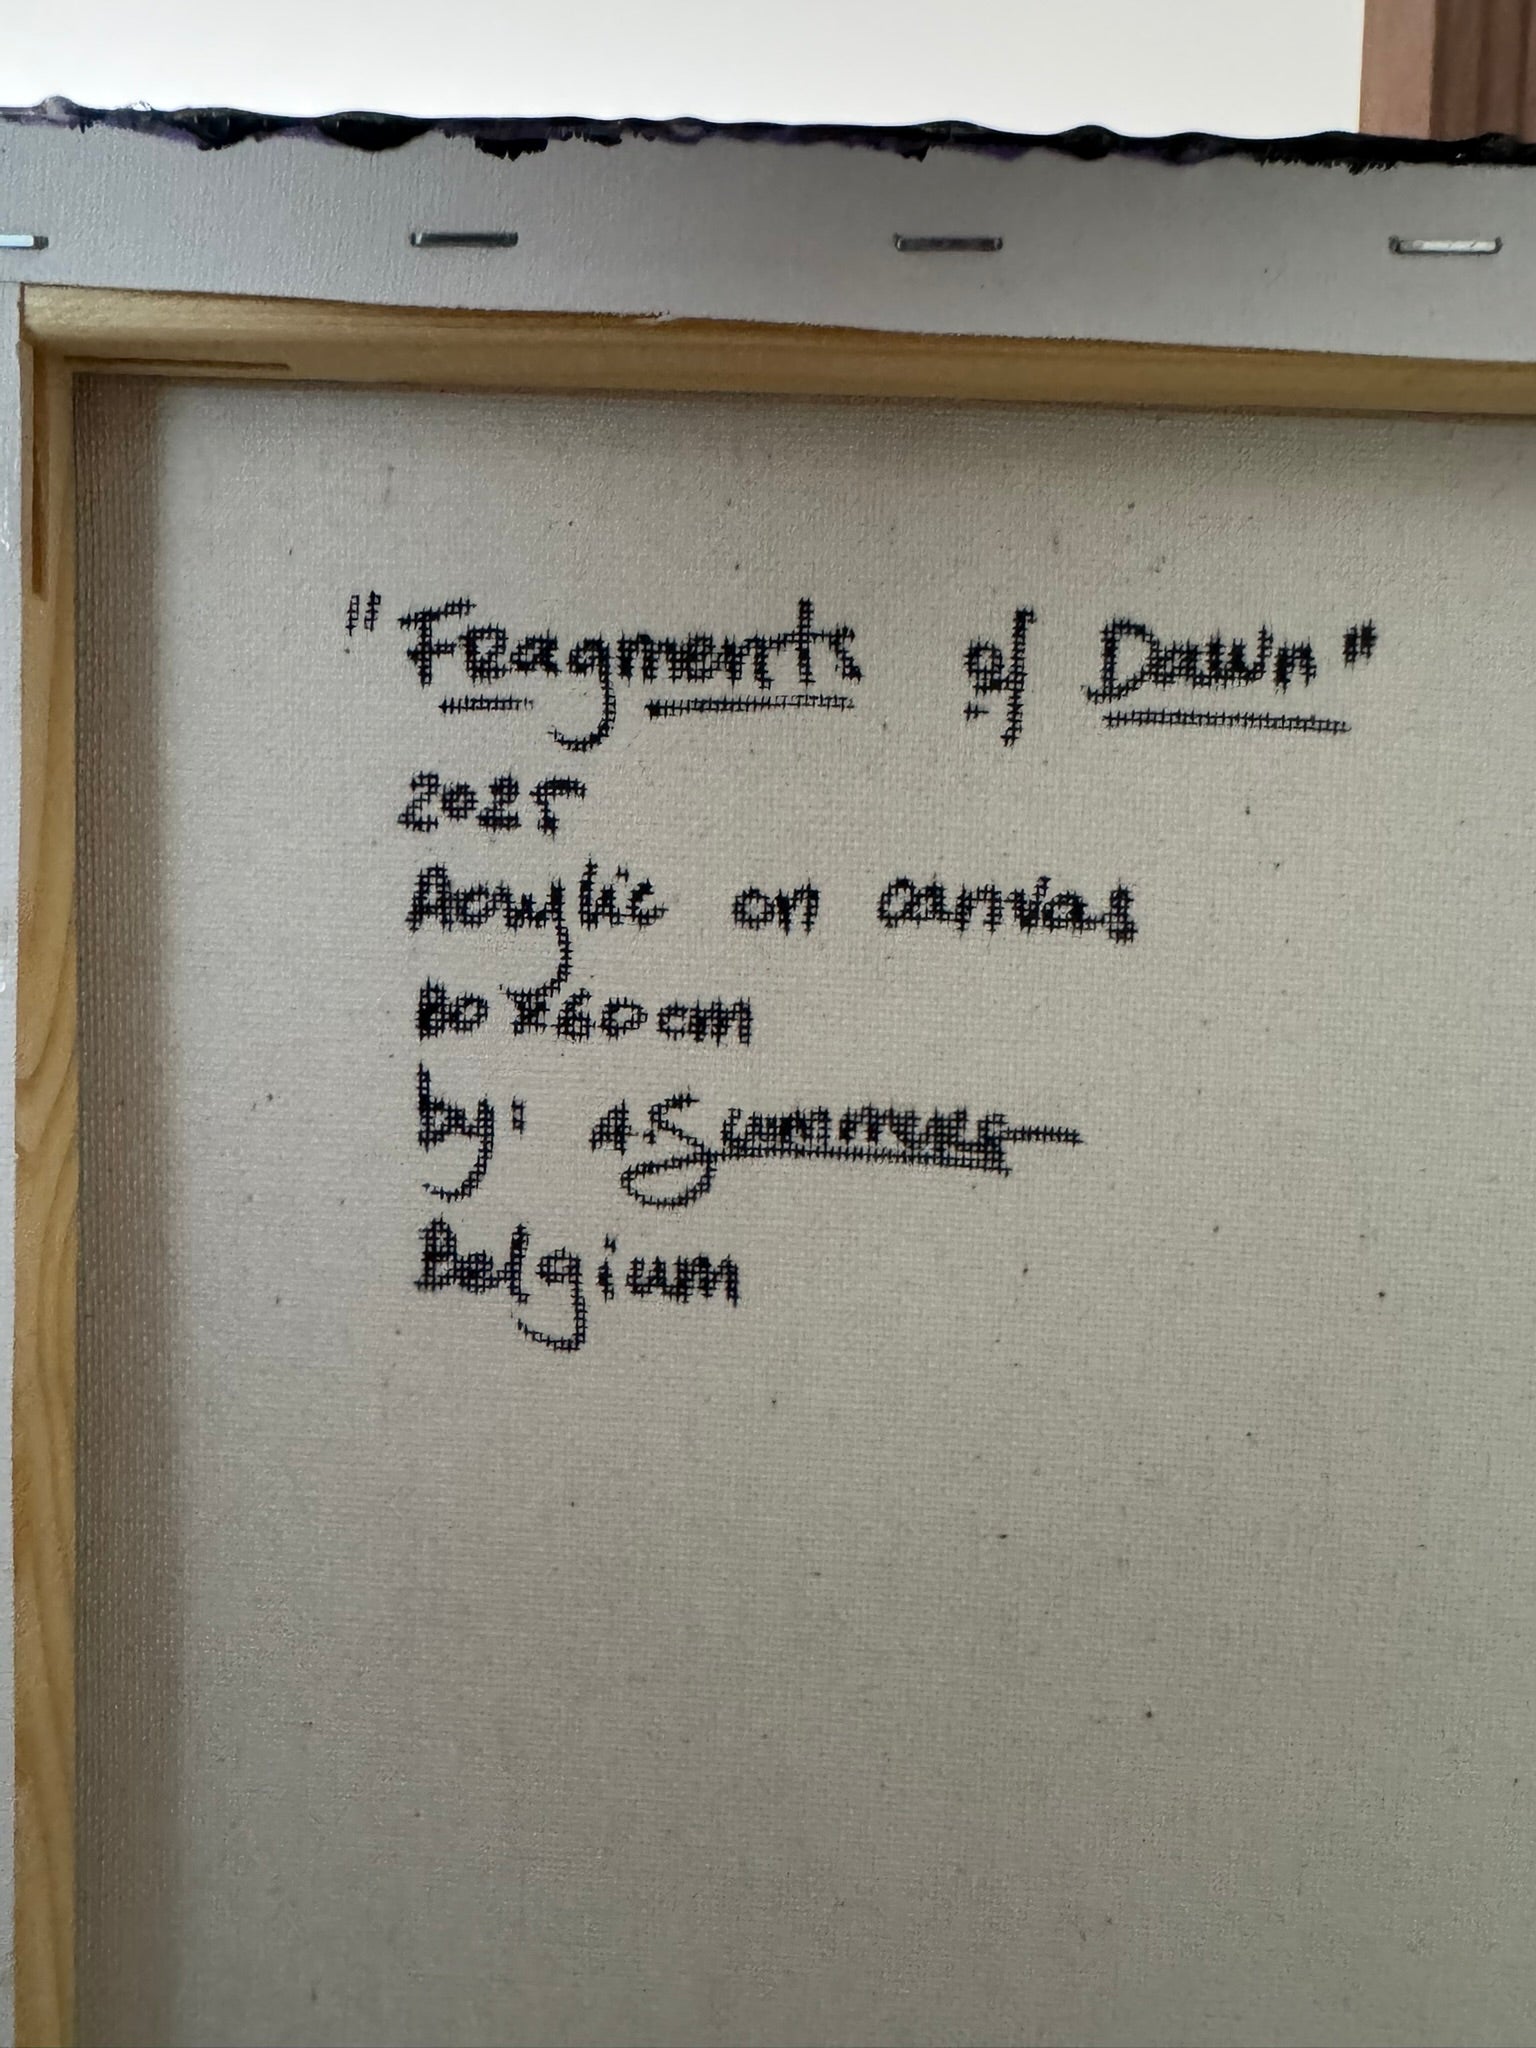 "Fragments of Dawn"
2025
Acrylic on canvas
cm
by:
Belgium